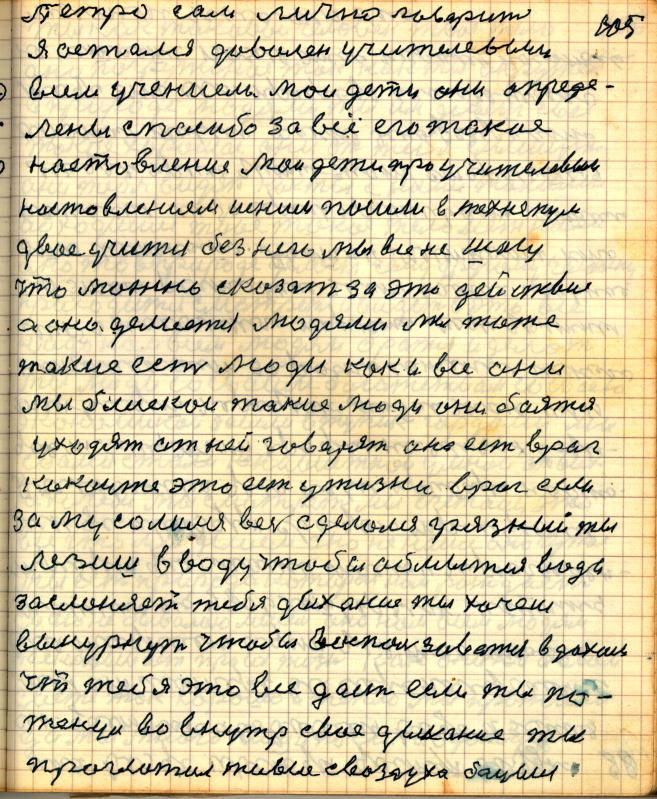 305
Петро сам лично говарит
я остался доволен учителевым
всем учением. мои дети они опреде-
лены спосибо за всё его такое
настовление мои дети про учителевым
настовлениям пошли в технекум
двое учится без него мы все не шагу
что можнь сказат за это действие
а оно делается людями мы тоже
такие есть люди как и все они
мы близкои такие люди они боятся
уходят от ней говарят она ест враг
какоиже это ест у жизни враг если
замусолился весь сделался грязный ты
лезиш в воду чтобы облится вода
заслоняет тебя дыхание ты хочеш
вынурнут чтобы воспользоватся вдохом
что тебя это все даст если ты по-
тянул во внутр свое дыхание ты
проглотил живые с воздуха бацылы